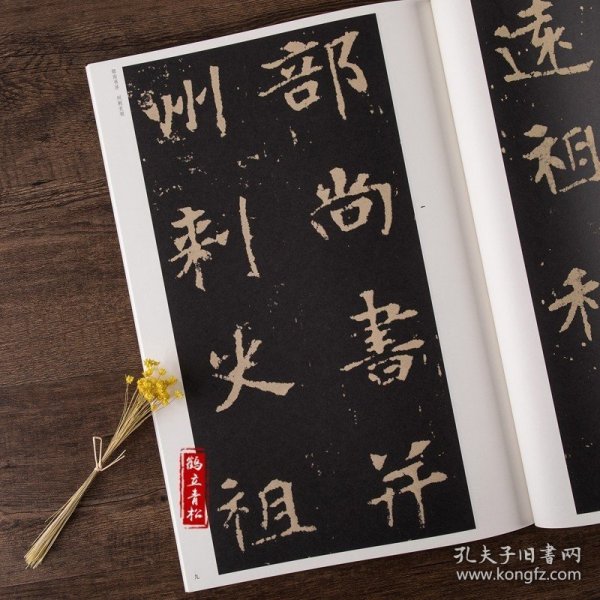 遠祖
部尚書并
州刺史祖
九
鹤立青松
孔夫子旧書网
www.kongfz.com